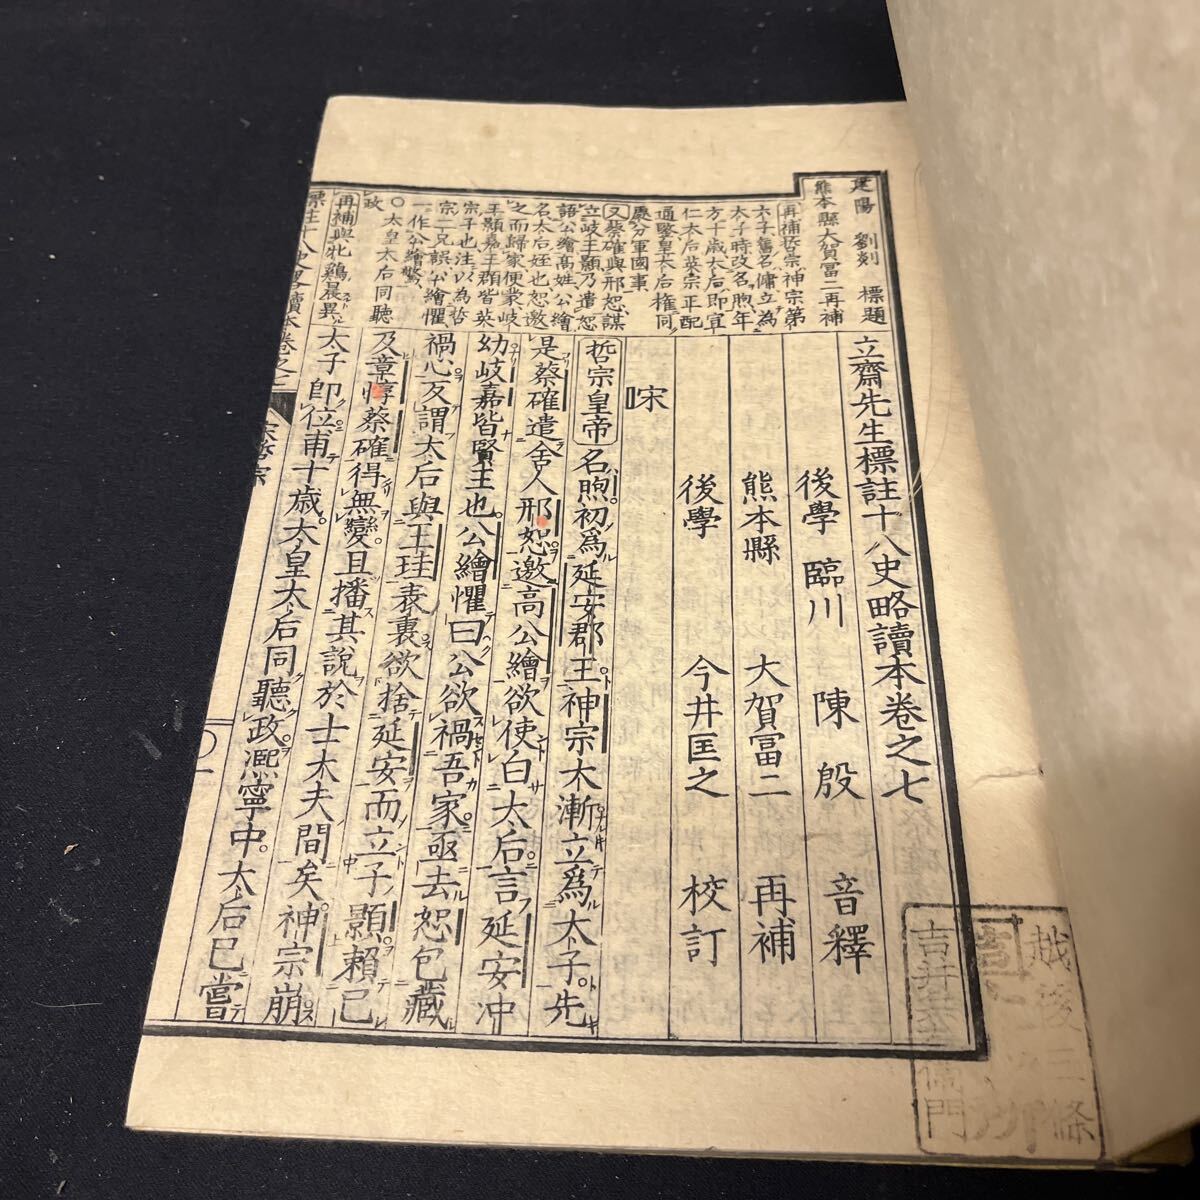 立齋先生標註十八史略讀本卷之七
後學 臨川 陳殷 音釋
熊本縣 大賀冨二 再補
後學 今井匡之 校訂
宋
哲宗皇帝名煦初爲延安郡王神宗大漸立爲太子先
是蔡確遣舍人邢恕邀高公繪欲使白太后言延安冲
幼岐嘉皆賢主也公繪懼曰公欲禍吾家亟去恕包藏
禍心反謂太后與王珪表裏欲捨延安而立子顥賴已
及章惇蔡確得無變且播其說於士大夫間矣神宗崩
太子即位甫十歳太皇太后同聽政熈寧中太后已嘗
建陽 劉剡 標題
熊本縣大賀冨二再補
再補哲宗神宗第
六子舊名傭立爲
太子時改名煦年
方十歳太后即宣
仁太后英宗正配
通鑒皇太后權同
處分軍國事
又蔡確與邢恕謀
立岐王顥乃遣恕
語公繪髙姓公繪
名太后姪也恕邀
之而歸家便蒙岐
王顥嘉王頵皆英
宗子也注以爲哲
宗二兄誤公繪懼
一作公繪驚
〇太皇太后同聽
政
再補與牝鷄晨異
標註十八史畧讀本卷之七
宋哲宗
一
越後三條
吉井
門